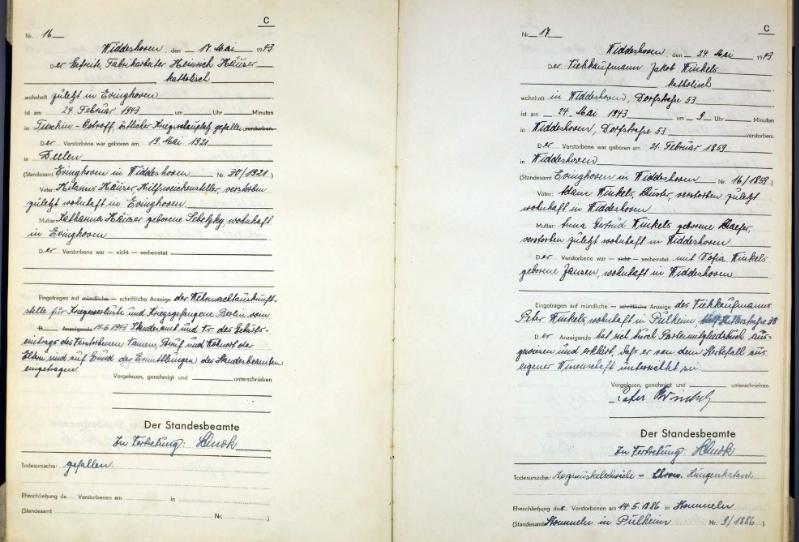 C
Nr. 16
Widdeshoven, den 17. Mai 1943
Der Gefreite, Fabrikarbeiter Heinrich Häuser
katholisch
wohnhaft zuletzt in Evinghoven
ist am 24. Februar 1943 um Uhr Minuten
in östlicher Kriegsschauplatz gefallen verstorben
Der Verstorbene war geboren am 19. Mai 1921
in Deelen
(Standesamt Evinghoven in Widdeshoven Nr. 30/1921)
Vater: Häuser, Hilfsweichensteller, verstorben
zuletzt wohnhaft in Evinghoven
Mutter: Katharina Häuser geborene wohnhaft
in Evinghoven
Der Verstorbene war — nicht — verheiratet
Eingetragen auf mündliche — schriftliche Anzeige der Wehrmachtauskunft-
stelle für Kriegsverluste und Kriegsgefangene Berlin vom
D Anzeigende Standesamt und Nr. des Geburts-
eintrages des Verstorbenen Namen, Beruf und Wohnort der
Eltern sind auf Grund der Ermittlungen des Standesbeamten
eingetragen.
Vorgelesen, genehmigt und unterschrieben
Der Standesbeamte
In Vertretung:
Todesursache: gefallen.
Eheschließung de Verstorbenen am in
(Standesamt Nr. )
C
Nr. 17
Widdeshoven, den 24. Mai 1943
Der Viehkaufmann Jakob Winkels
katholisch
wohnhaft in Widdeshoven, Dorfstraße 53
ist am 24. Mai 1943 um 9 Uhr Minuten
in Widdeshoven, Dorfstraße 53 verstorben.
Der Verstorbene war geboren am 21. Februar 1859
in Widdeshoven
(Standesamt Evinghoven in Widdeshoven Nr. 16/1859)
Vater: Adam Winkels, verstorben zuletzt
wohnhaft in Widdeshoven
Mutter: Anna Gertrud Winkels geborene
verstorben zuletzt wohnhaft in Widdeshoven
Der Verstorbene war — nicht — verheiratet mit Sofia Winkels
geborene Jansen, wohnhaft in Widdeshoven
Eingetragen auf mündliche — schriftliche Anzeige des Viehkaufmanns
Peter Winkels, wohnhaft in Pulheim,
Der Anzeigende hat sich durch Parteimitgliedsbuch aus-
gewiesen und erklärt, daß er von dem Sterbefall aus
eigener Wissenschaft unterrichtet sei
Vorgelesen, genehmigt und unterschrieben
Peter Winkels
Der Standesbeamte
In Vertretung:
Todesursache: Herzmuskelschwäche - Chron.
Eheschließung des Verstorbenen am 14.5.1886 in Stommeln
(Standesamt Stommeln in Pulheim Nr. 9/1886)